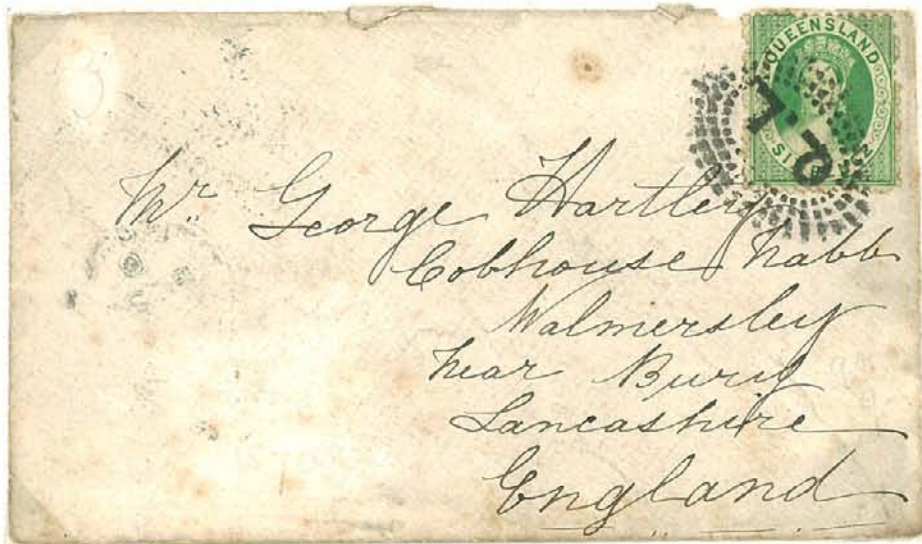 QUEENSLAND
SIXPENCE
Mr. George Hartley
Cobhouse Nabb
Walmersley
Near Bury
Lancashire
England